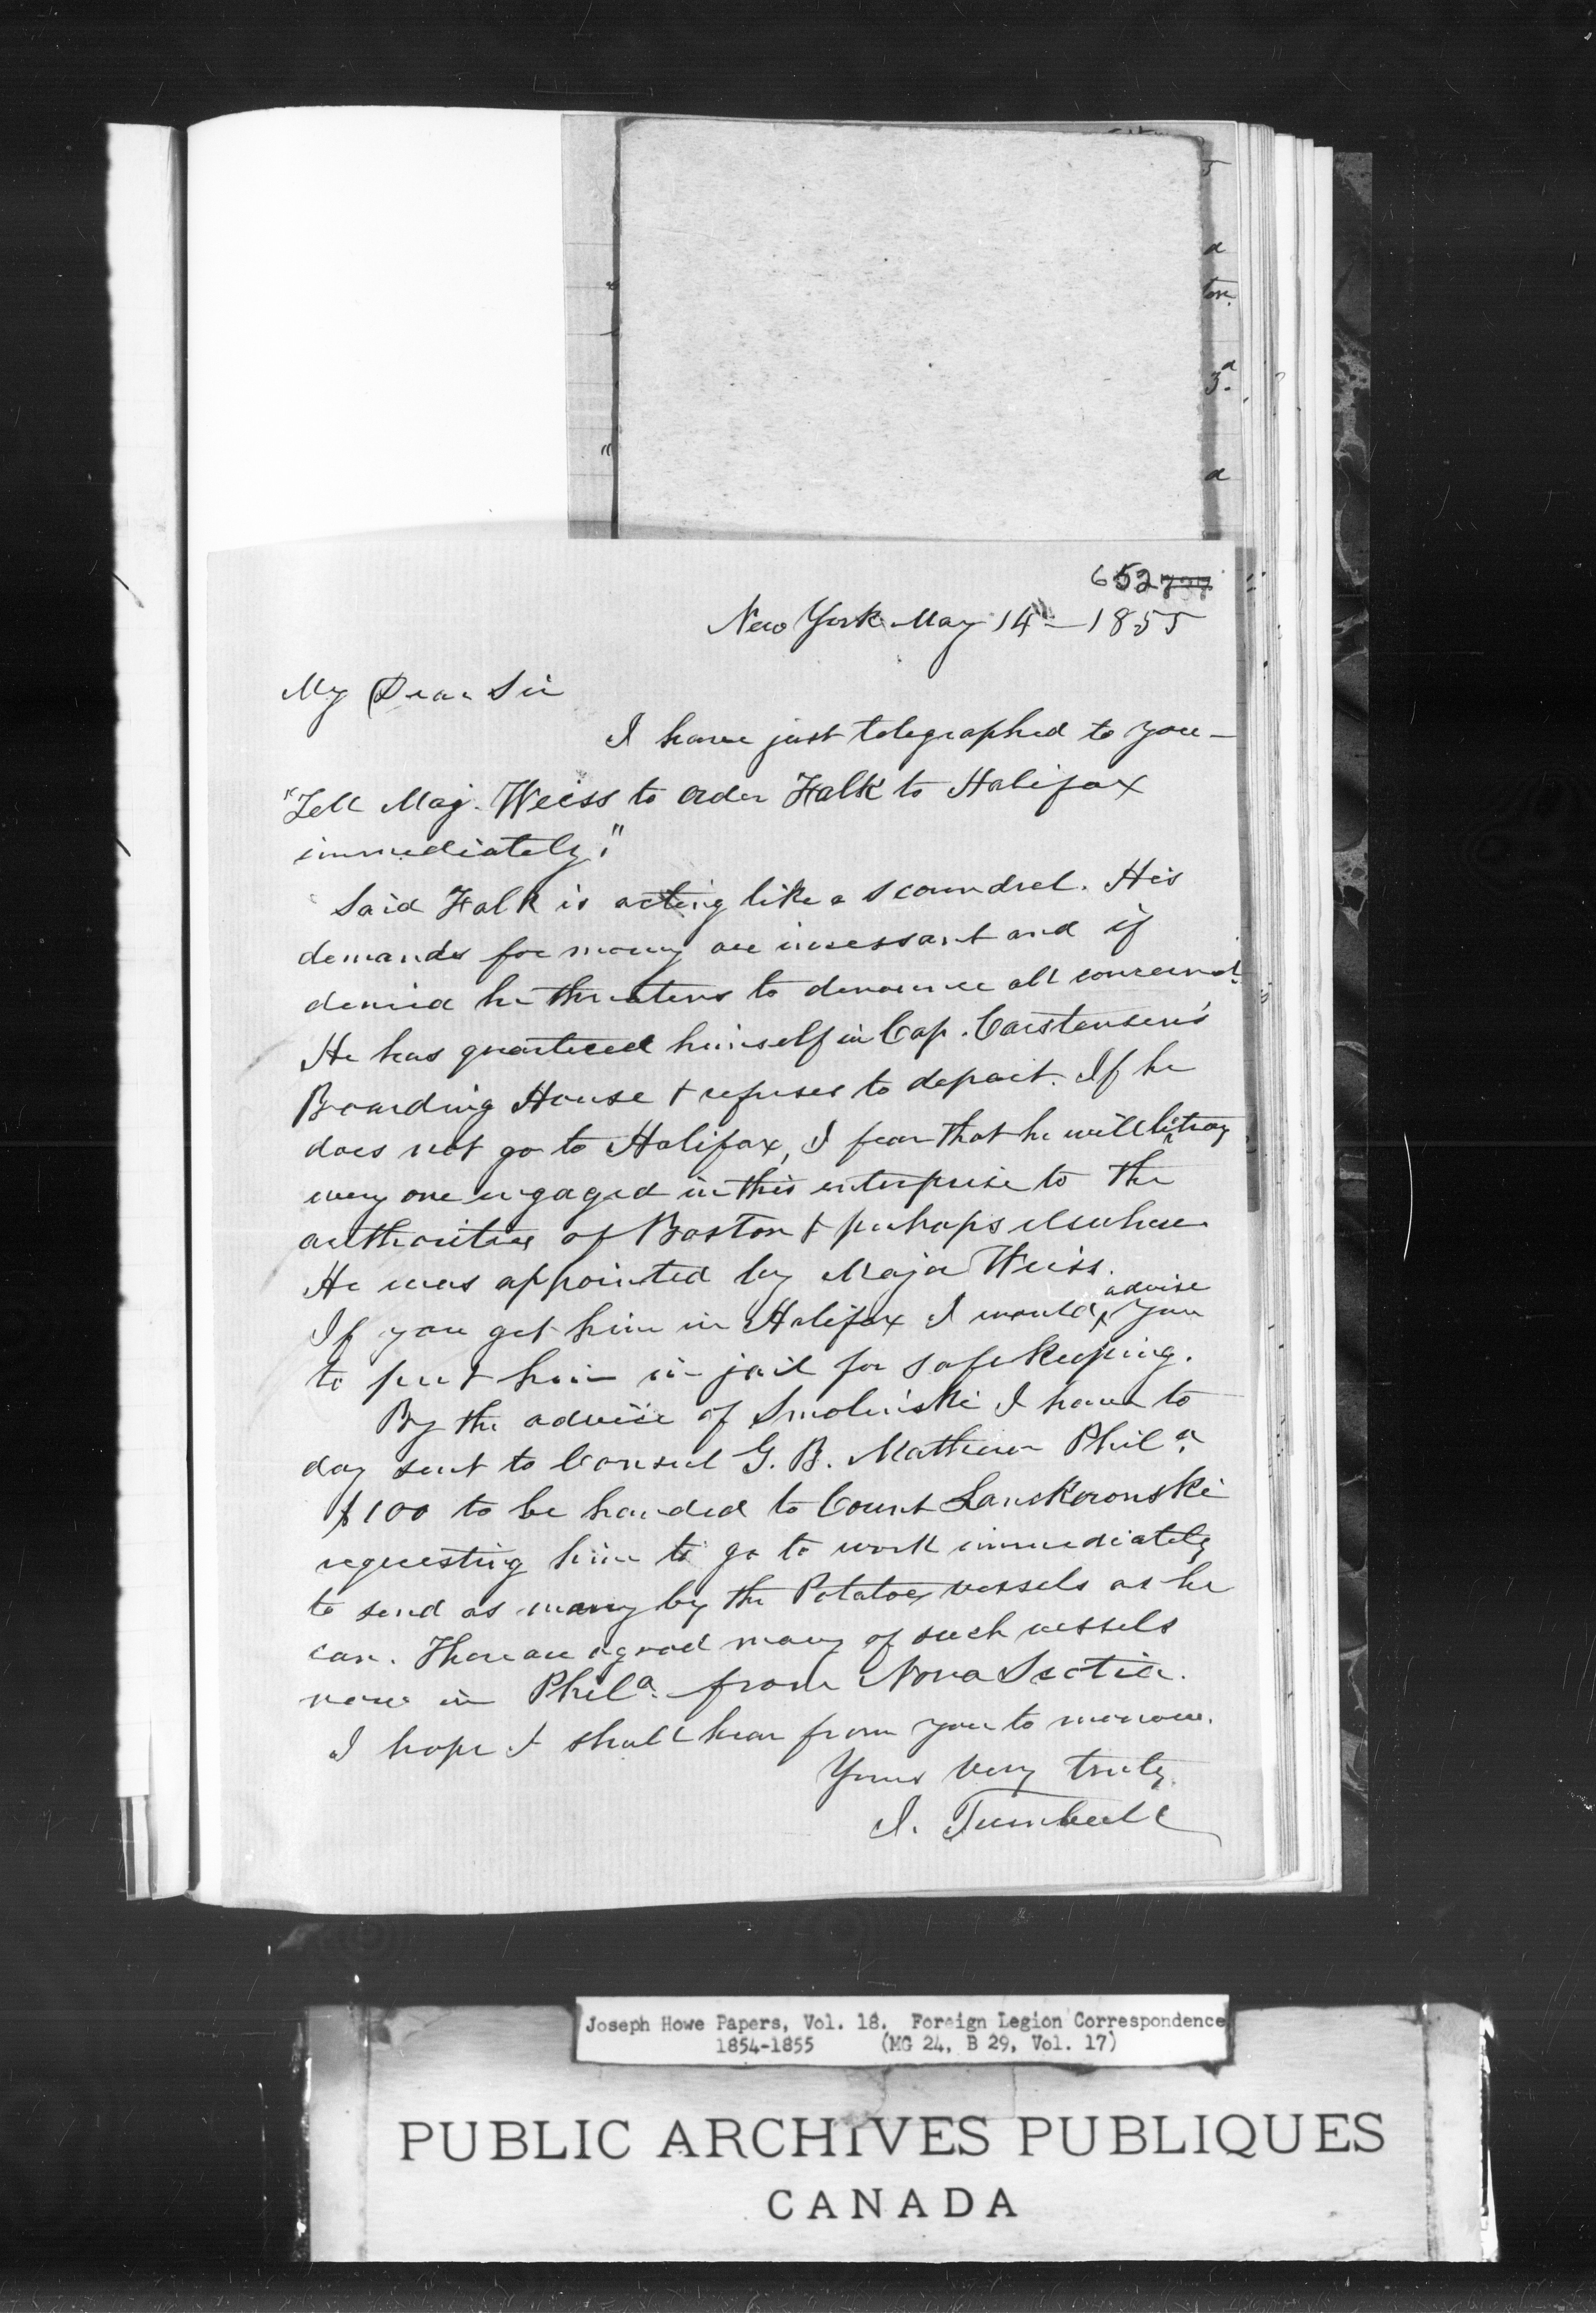 652 737
New York May 14th - 1855
My Dear Sir
I have just telegraphed to you -
"Tell Maj. Weiss to order Falk to Halifax
immediately."
Said Falk is acting like a scoundrel. His
demands for money are incessant and if
denied he threatens to denounce all concerned.
He has quartered himself in Cap. Carstensen's
Boarding House & refuses to depart. If he
does not go to Halifax, I fear that he will betray
every one engaged in this enterprise to the
authorities of Boston & perhaps elsewhere.
He was appointed by Major Weiss.
If you get him in Halifax I would advise you
to put him in jail for safe keeping.
By the advise of Smolinski I have to
day sent to Consul G. B. Mathew Phila.
$100 to be handed to Count Lanckoronski
requesting him to go to work immediately
to send as many by the Potatoe vessels as he
can. There are a good many of such vessels
now in Phila. from Nova Scotia.
I hope I shall hear from you to morrow.
Yours very truly
I. Turnbull
Joseph Howe Papers, Vol. 18. Foreign Legion Correspondence
1854-1855 (MG 24, B 29, Vol. 17)
PUBLIC ARCHIVES PUBLIQUES
CANADA